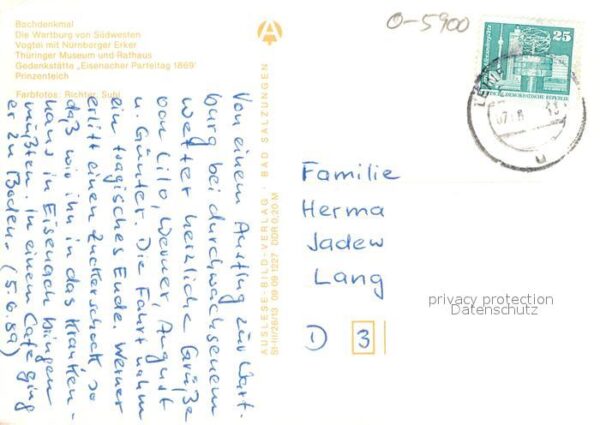 O-5900
Bachdenkmal
Die Wartburg von Südwesten
Vogtei mit Nürnberger Erker
Thüringer Museum und Rathaus
Gedenkstätte „Eisenacher Parteitag 1869"
Prinzenteich
Farbfotos: Richter, Suhl
AUSLESE-BILD-VERLAG · BAD SALZUNGEN
St-III/26/13 09 09 1227 DDR 0,20 M
Von einem Ausflug zur Wart-
burg bei durchwachsenem
Wetter herzliche Grüße
von Lilo, Werner, August
u. Günter. Die Fahrt nahm
ein tragisches Ende. Werner
erlitt einen Zuckerschock, so
daß wir ihn in das Kranken-
haus in Eisenach bringen
mußten. In einem Cafe ging
er zu Boden. (5.6.89)
25
DEUTSCHE DEMOKRATISCHE REPUBLIK
Familie
Herma
Jadew
Lang
privacy protection
Datenschutz
1) 3